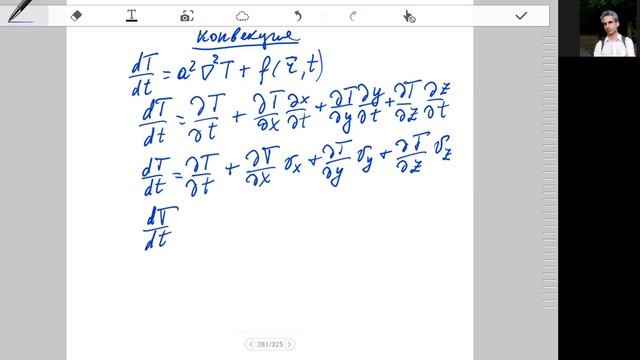 конвекция
dT/dt = a²∇²T + f(r̄,t)
dT/dt = ∂T/∂t + ∂T/∂x ∂x/∂t + ∂T/∂y ∂y/∂t + ∂T/∂z ∂z/∂t
dT/dt = ∂T/∂t + ∂T/∂x v_x + ∂T/∂y v_y + ∂T/∂z v_z
dT/dt
281/325